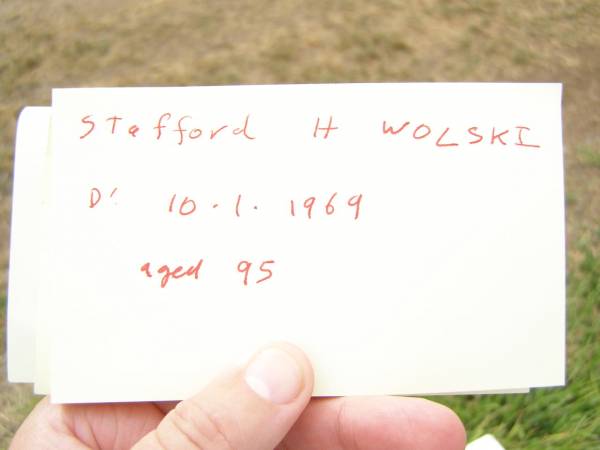 Stafford H WOLSKI
D: 10.1. 1969
aged 95